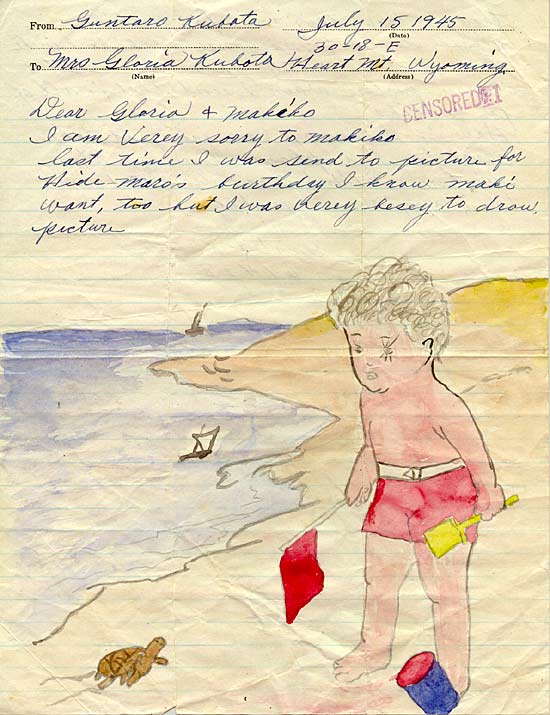 From Guntaro Kubota July 15 1945
(Date)
30-18-E
To Mrs Gloria Kubota Heart Mt. Wyoming
(Name) (Address)
CENSORED
Dear Gloria & Makiko
I am verey sorry to makiko
last time I was send to picture for
Hide-Maro's burthday I know maki
want, too but I was verey besey to drow,
picture